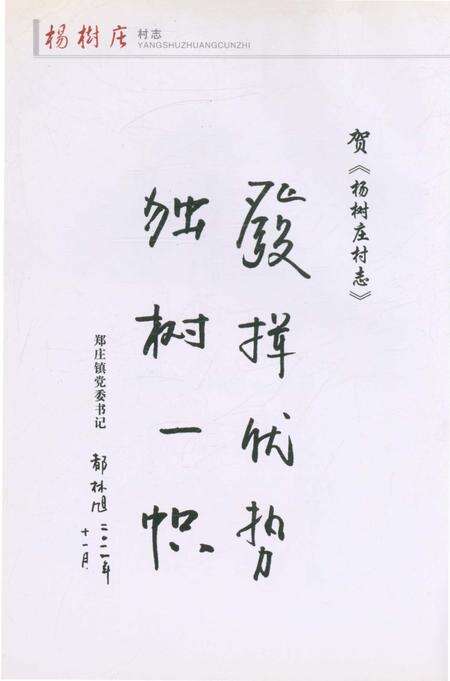 杨树庄
村志
YANGSHUZHUANGCUNZHI
贺《杨树庄村志》
發挥优势
独树一帜
郑庄镇党委书记
郗林旭 二〇一一年
十一月